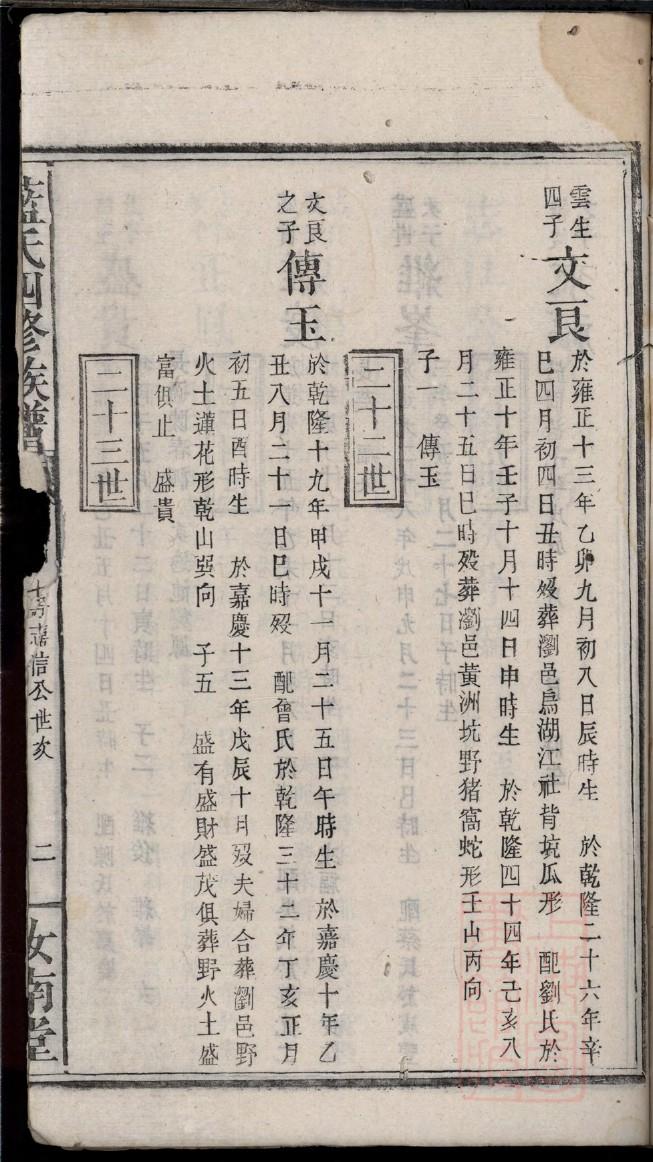 雲生
四子
文良
於雍正十三年乙卯九月初八日辰時生　於乾隆二十六年辛
巳四月初四日丑時殁葬瀏邑烏湖江社背坑瓜形　配劉氏於
雍正十年壬子十月十四日申時生　於乾隆四十四年己亥八
月二十五日巳時殁葬瀏邑黃洲坑野猪窩蛇形壬山丙向
子一　傳玉
二十二世
文良
之子
傳玉
於乾隆十九年甲戌十一月二十五日午時生　於嘉慶十年乙
丑八月二十一日巳時殁　配曾氏於乾隆三十二年丁亥正月
初五日酉時生　於嘉慶十三年戊辰十月殁夫婦合葬瀏邑野
火土蓮花形乾山巽向　子五　盛有盛財盛茂俱葬野火土盛
富俱止　盛貴
二十三世
藍氏四修族譜
嘉信公世次
二
汝南堂